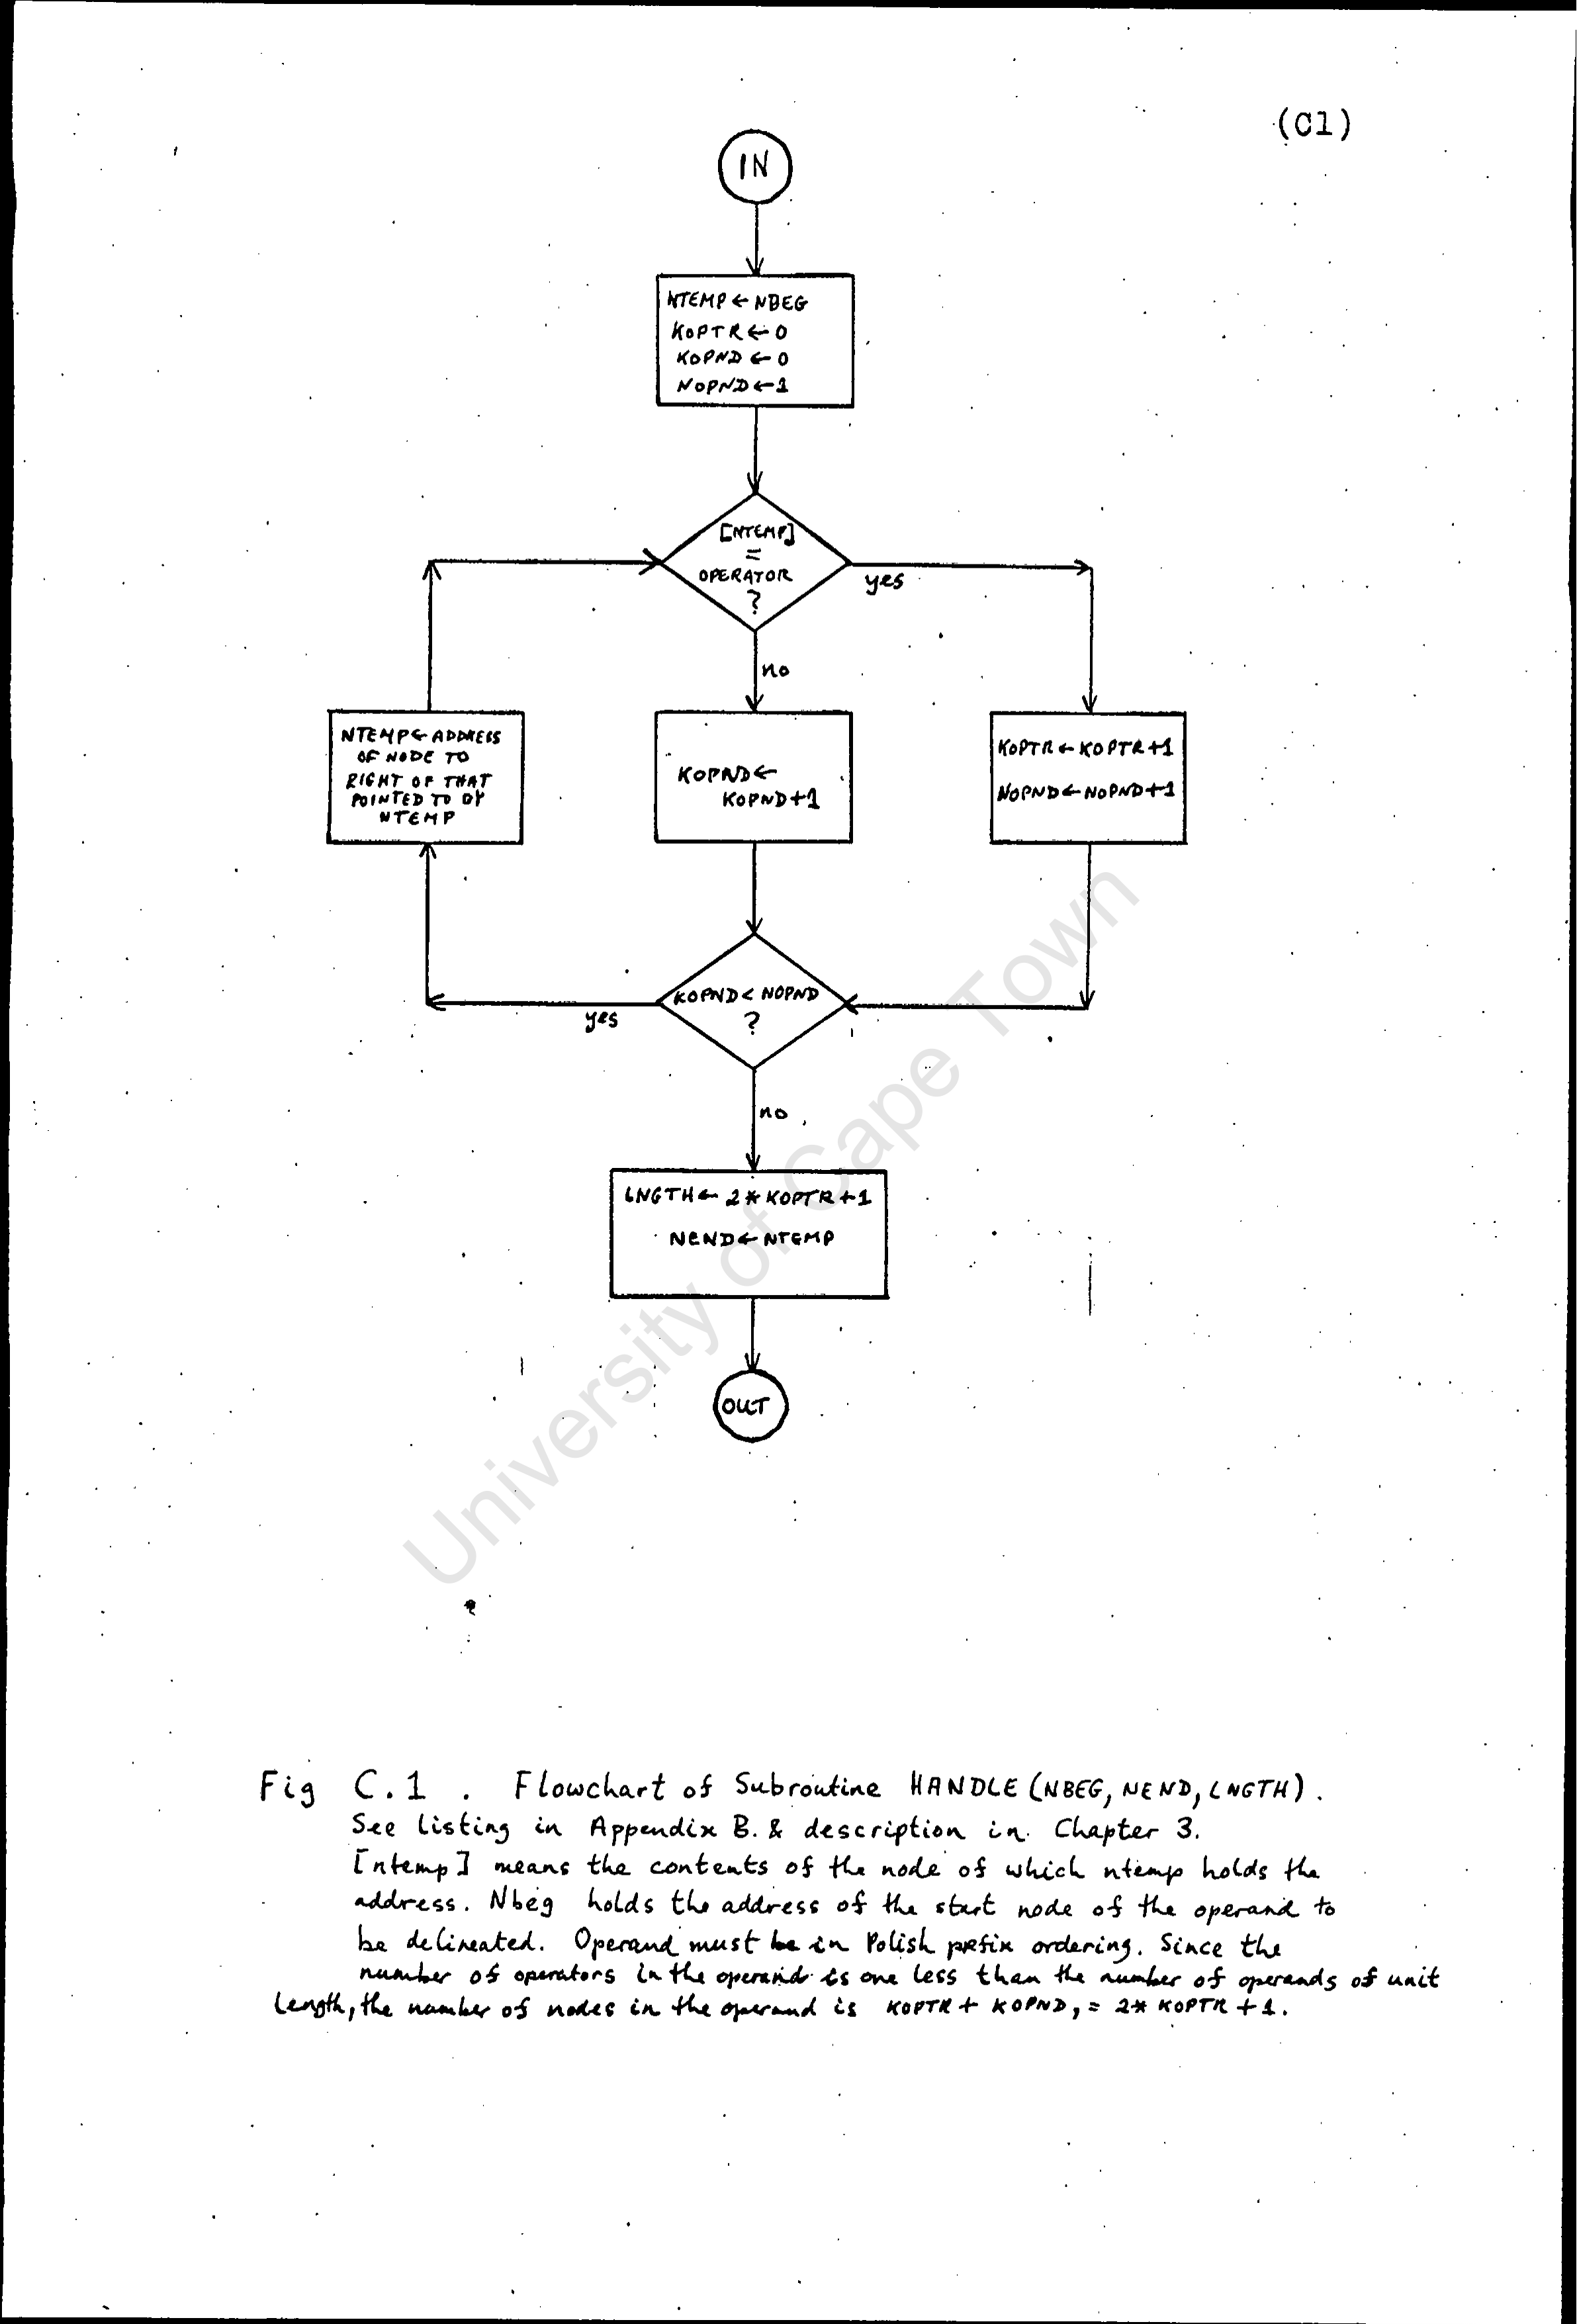 (C1)
IN
NTEMP ← NBEG
KOPTR ← 0
KOPND ← 0
NOPND ← 1
[NTEMP]
=
OPERATOR
?
yes
no
NTEMP ← ADDRESS
OF NODE TO
RIGHT OF THAT
POINTED TO BY
NTEMP
KOPND ←
KOPND+1
KOPTR ← KOPTR+1
NOPND ← NOPND+1
KOPND < NOPND
?
yes
no
LNGTH ← 2 * KOPTR +1
NEND ← NTEMP
OUT
University of Cape Town
Fig C.1 . Flowchart of Subroutine HANDLE (NBEG, NEND, LNGTH).
See listing in Appendix B. & description in Chapter 3.
[ntemp] means the contents of the node of which ntemp holds the
address. Nbeg holds the address of the start node of the operand to
be delineated. Operand must be in Polish prefix ordering. Since the
number of operators in the operand is one less than the number of operands of unit
length, the number of nodes in the operand is KOPTR + KOPND, = 2* KOPTR + 1.